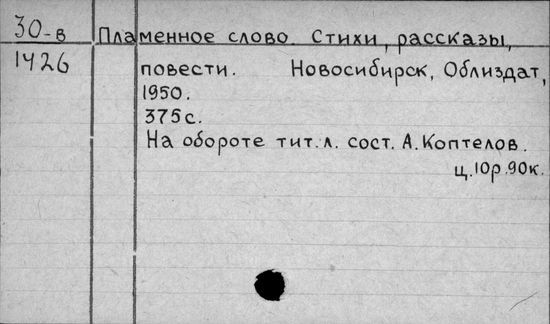 30-в Пламенное слово. Стихи, рассказы,
1426 повести. Новосибирск, Облиздат,
1950.
375 с.
На обороте тит. л. сост. А. Коптелов.
ц. 10р. 90к.